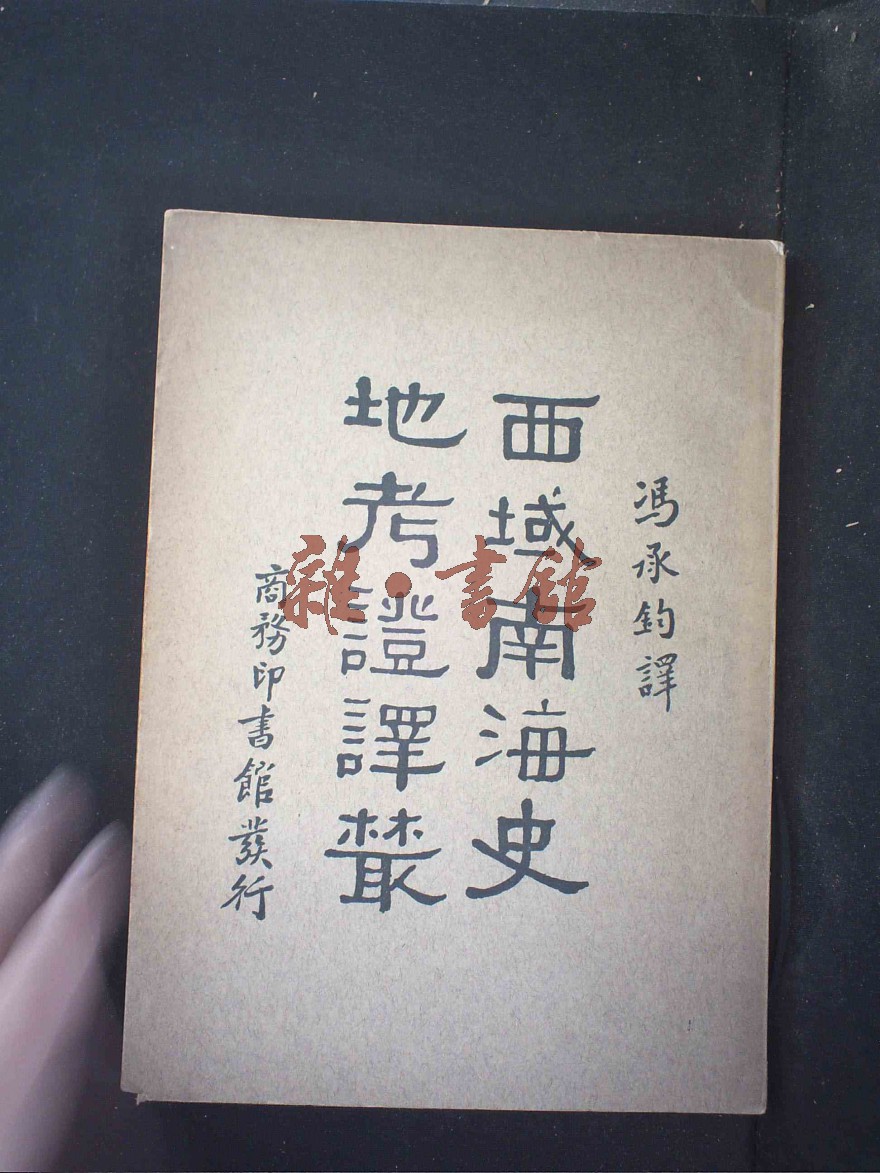 馮承鈞譯
西域南海史
地考證譯叢
商務印書館發行
雜·書館